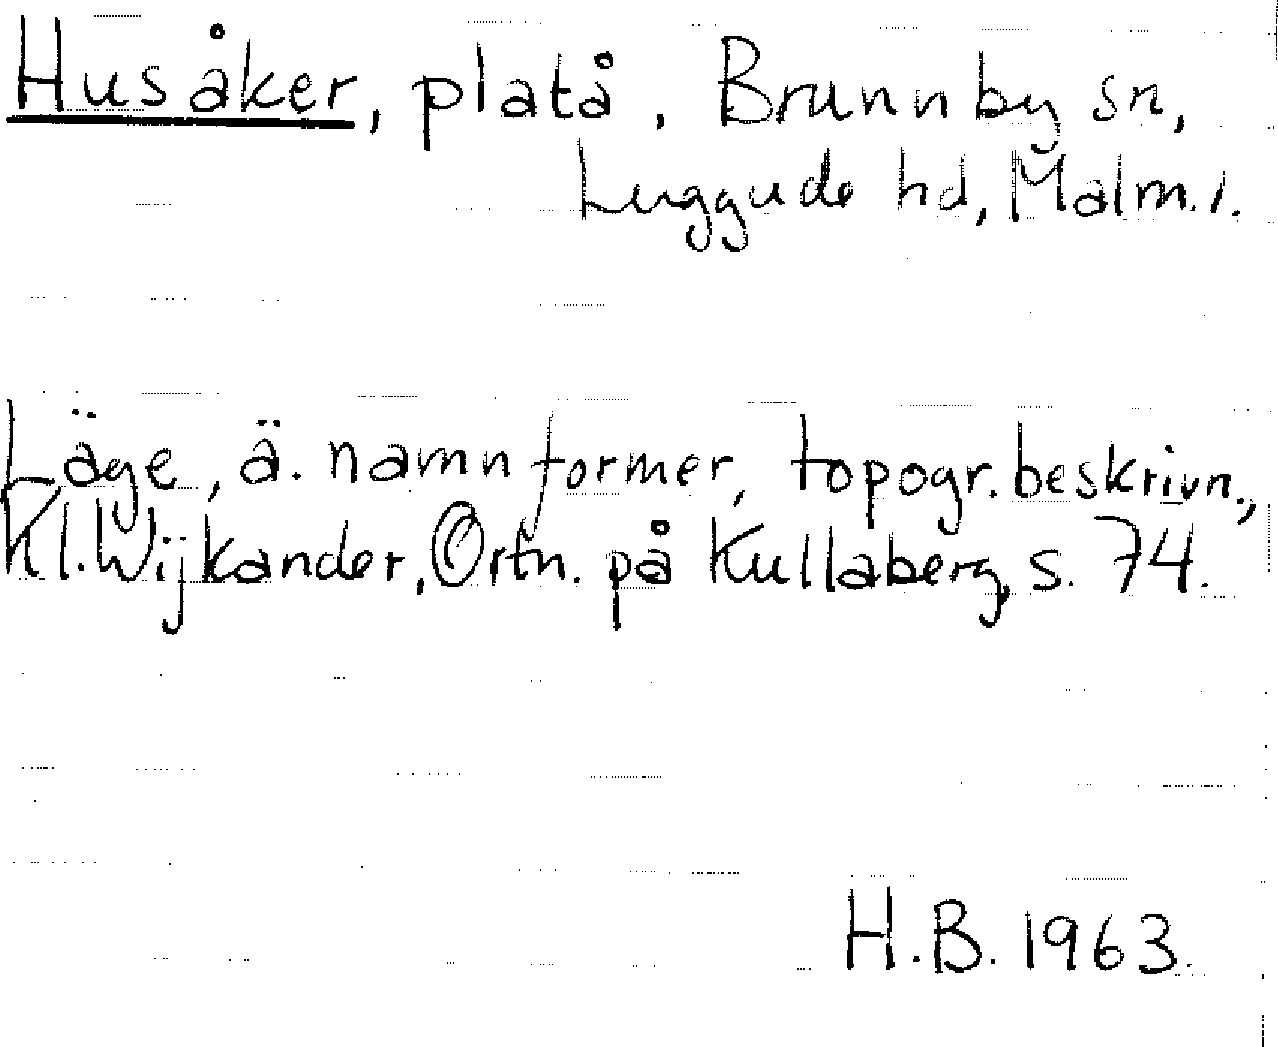 Husåker, platå, Brunnby sn,
Luggude hd, Malm.l.
Läge, ä. namnformer, topogr. beskrivn.,
Kl. Wijkander, Ortn. på Kullaberg, s. 74.
H.B. 1963.